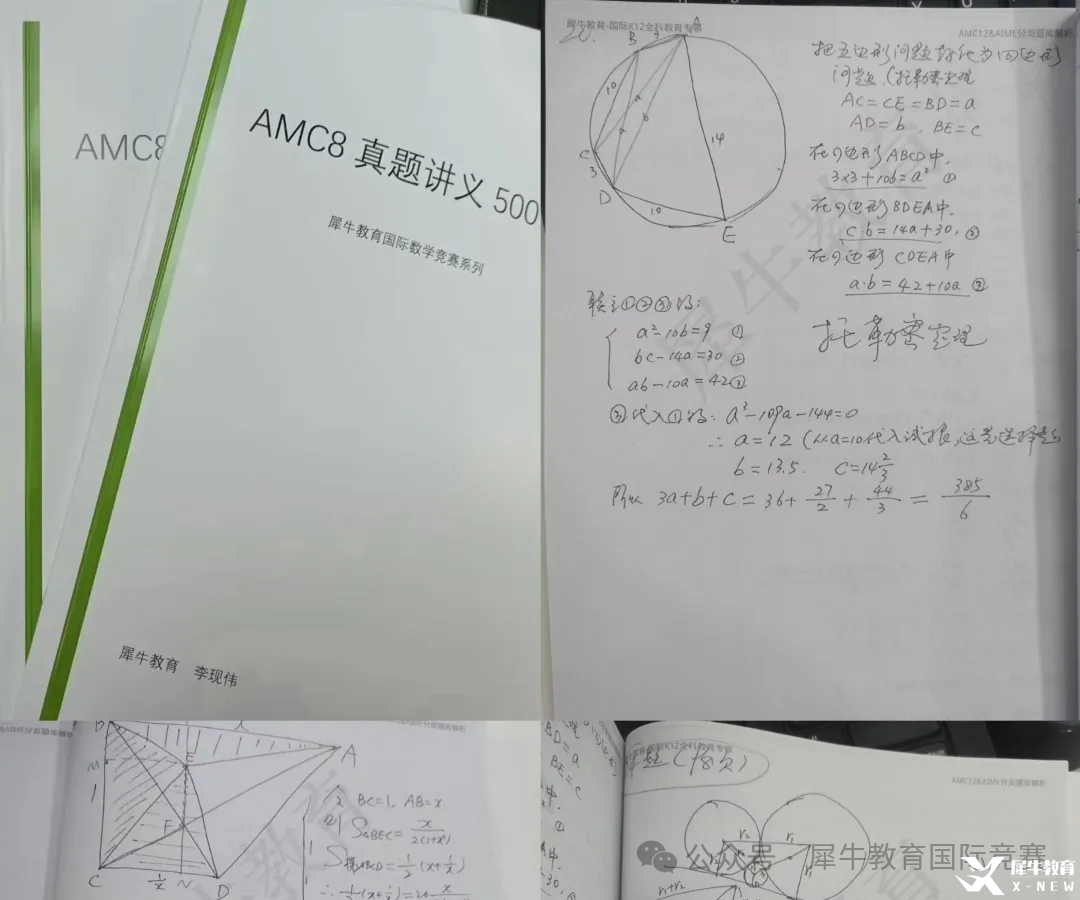 AMC8
AMC8 真题讲义 500
犀牛教育国际数学竞赛系列
犀牛教育 李现伟
犀牛教育-国际K12全科教育专家
AMC12&AIME分类题库解析
20.
B 3 A
10 a
a b 14
C
3
D 10
E
把五边形问题转化为四边形
问题.(托勒密定理
AC=CE=BD=a
AD=b, BE=c
在四边形ABCD中,
3×3+10b=a² ①
在四边形BDEA中.
c·b=14a+30, ②
在四边形CDEA中
a·b=42+10a ③
托勒密定理
联立①②③得:
a²-10b=9 ①
bc-14a=30 ②
ab-10a=42 ③
③代入①得: a³-109a-420=0
∴ a=12 (从a=10代入试根,这是选择题
b=13.5. c=14⅔
所以 3a+b+c=36+27/2+44/3=385/6
AIME分类题库解析
A
E
M
1
F
C 1/x N D
设 BC=1, AB=x
则 S△BEC=x/(2(1+x²))
=1/2(x+1/x)
BD=a
BE=c
国际K12全科教育专家
AMC12&AIME分类题库解析
r₂ r₁
r₁+r₂
公众号·犀牛教育国际竞赛
犀牛教育
X-NEW